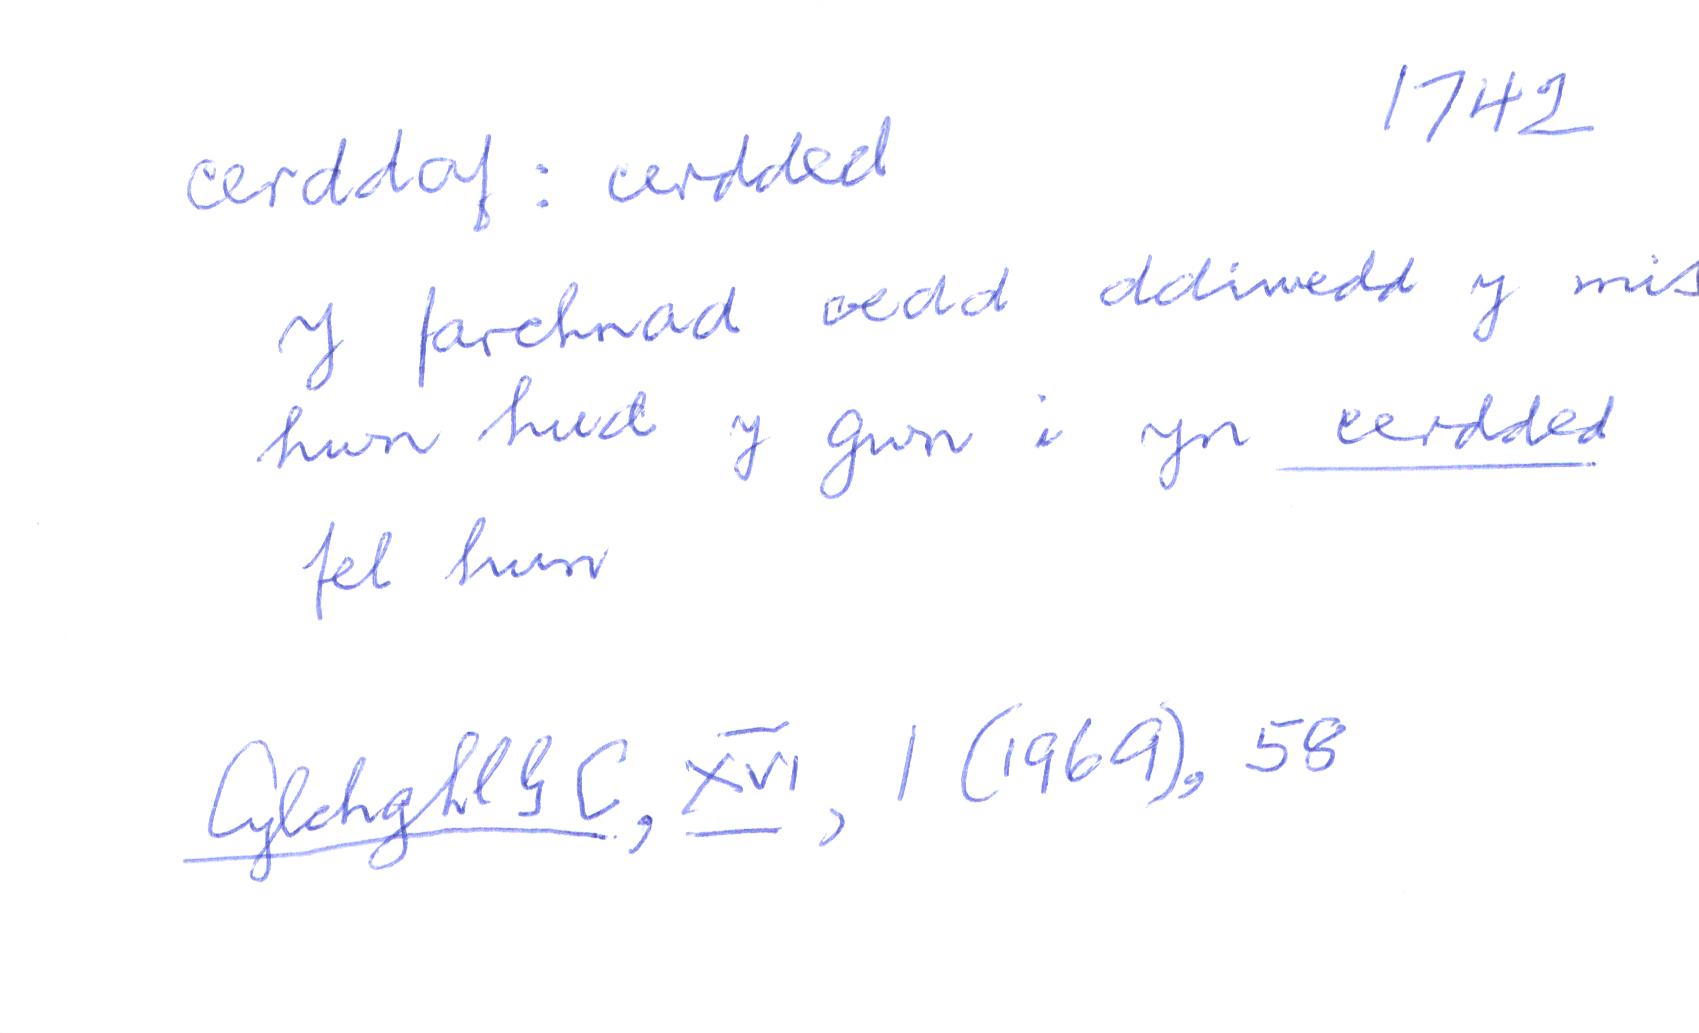 1742
cerddaf : cerdded
y farchnad oedd ddiwedd y mis
hwn hud y gwn i yn cerdded
fel hwn
CylchgHLlGC, XVI, 1 (1969), 58